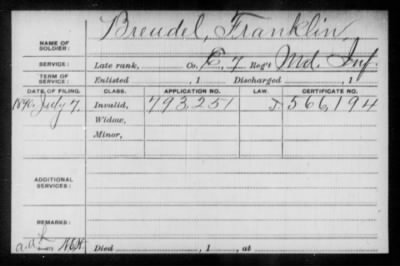 NAME OF SOLDIER: Breudel, Franklin,
SERVICE: Late rank, Co. E, 7 Reg't Md. Inf.
TERM OF SERVICE: Enlisted , 1 Discharged , 1
DATE OF FILING. CLASS. APPLICATION NO. LAW. CERTIFICATE NO.
1890, July 7, Invalid, 793,251 J. 566,194
Widow,
Minor,
ADDITIONAL SERVICES:
REMARKS:
Died , 1 , at